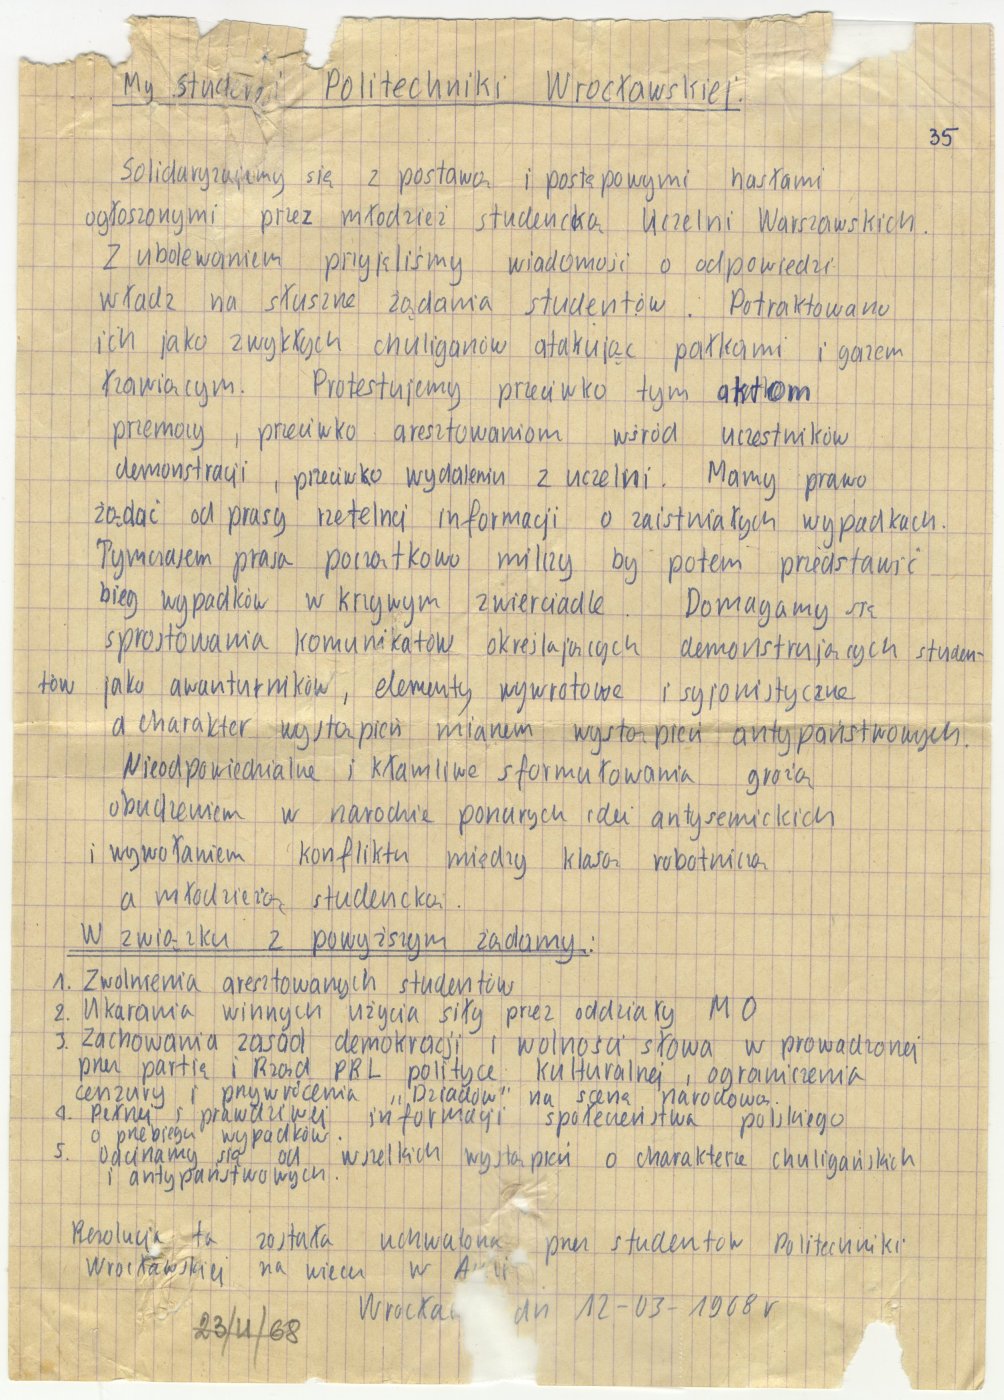 My studenci Politechniki Wrocławskiej.
35
Solidaryzujemy się z postawą i postępowymi hasłami
ogłoszonymi przez młodzież studencką Uczelni Warszawskich.
Z ubolewaniem przyjęliśmy wiadomość o odpowiedzi
władz na słuszne żądania studentów. Potraktowano
ich jako zwykłych chuliganów atakując pałkami i gazem
łzawiącym. Protestujemy przeciwko tym aktom
przemocy, przeciwko aresztowaniom wśród uczestników
demonstracji, przeciwko wydaleniu z uczelni. Mamy prawo
żądać od prasy rzetelnej informacji o zaistniałych wypadkach.
Tymczasem prasa początkowo milczy by potem przedstawić
bieg wypadków w krzywym zwierciadle. Domagamy się
sprostowania komunikatów określających demonstrujących studen-
tów jako awanturników, elementy wywrotowe i syjonistyczne
a charakter wystąpień mianem wystąpień antypaństwowych.
Nieodpowiedzialne i kłamliwe sformułowania grożą
obudzeniem w narodzie ponurych idei antysemickich
i wywołaniem konfliktu między klasą robotniczą
a młodzieżą studencką.
W związku z powyższym żądamy:
1. Zwolnienia aresztowanych studentów
2. Ukarania winnych użycia siły przez oddziały MO
3. Zachowania zasad demokracji i wolności słowa w prowadzonej
przez partię i Rząd PRL polityce kulturalnej, ograniczenia
cenzury i przywrócenia "Dziadów" na scenę narodową.
4. Pełnej i prawdziwej informacji społeczeństwa polskiego
o przebiegu wypadków.
5. Odcinamy się od wszelkich wystąpień o charakterze chuligańskich
i antypaństwowych.
Rezolucja ta została uchwalona przez studentów Politechniki
Wrocławskiej na wiecu w
dn 12-03-1968 r
23/II/68